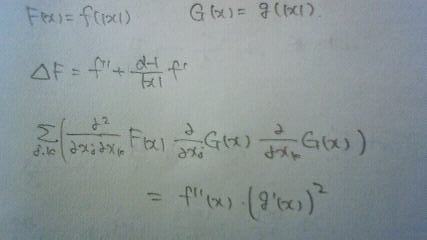 F(x) = f(|x|)    G(x) = g(|x|).
ΔF = f'' + (d-1)/|x| f'
∑_{j,k} ( ∂²/∂x_j∂x_k F(x) ∂/∂x_j G(x) ∂/∂x_k G(x) )
= f''(x) · (g'(x))²